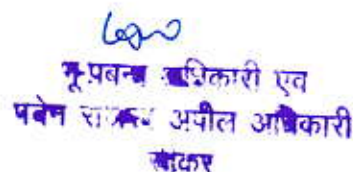 भू.प्रबन्ध अधिकारी एवं
पदेन राजस्व अपील अधिकारी
सीकर